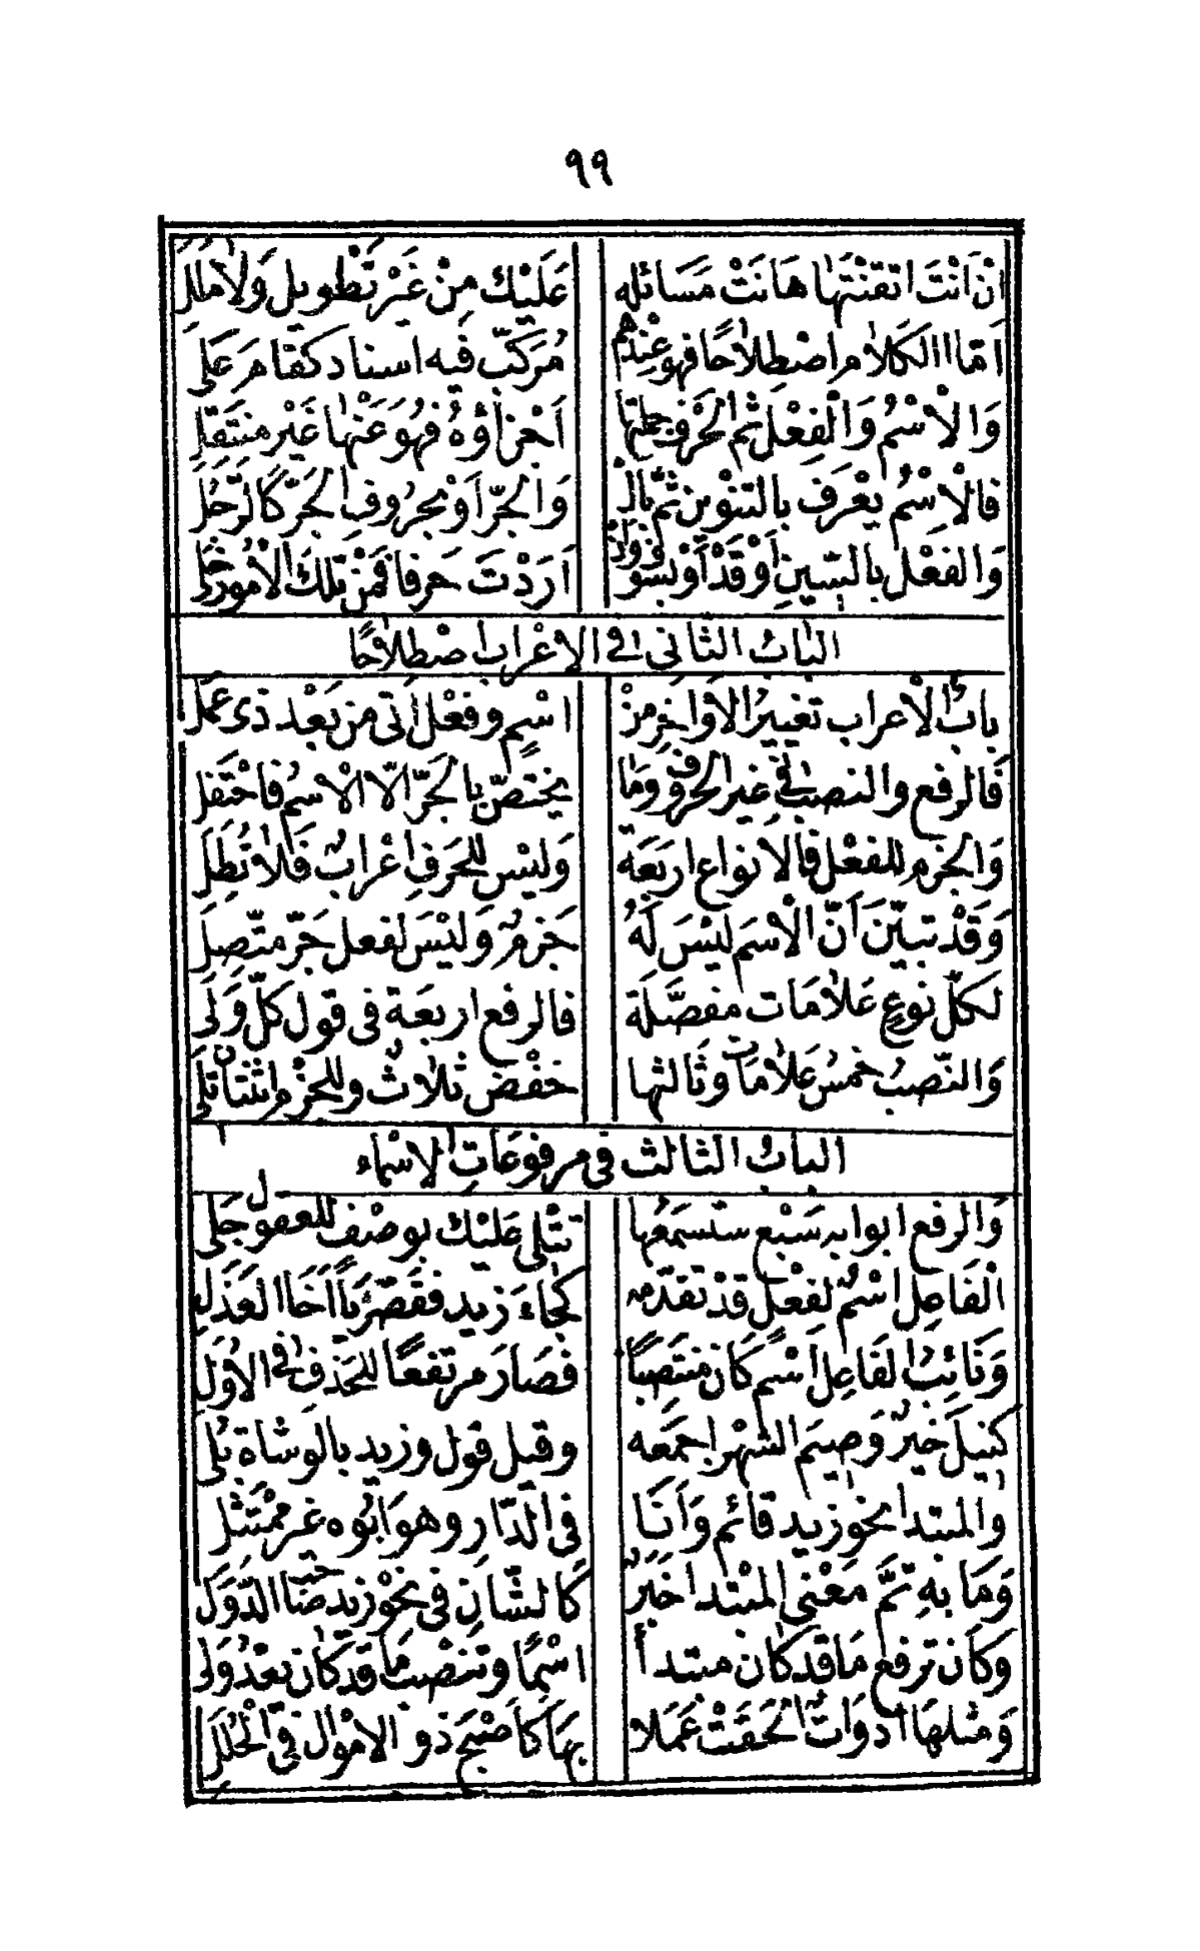 ٩٩
ان انْتَ اتقنْتَها هَانَتْ مَسَائله عَلَيْكَ مِنْ غَيْر تَطْويل وَلا مَلَلِ
امّا الكَلام اصْطِلاحًا فهو عِنْدهُم مُرَكّب فيه اسناد كقامَ عَلي
وَالاسْمُ وَالْفِعْل ثم الحَرْف جملتها اَجْزاؤهُ فهُوَ عَنْها غَيْر منتَقلِ
فالْاِسْمُ يعْرَفُ بالتنْوين ثمّ بالْ وَالجرّ اَوْ بحرُوفِ الجَرّ كالرّجُلِ
وَالفعْل بالسّينِ اَوْ قَدْ اَوْ بسَوْفَ وَاِنْ اَرَدْتَ حَرفا فمن تِلكَ الاُمور خَلِي
البَابُ الثاني في الاِعْراب اصْطلاحًا
بابُ الْاعراب تغييرُ الاَواخِرِ منْ اسْمٍ وفعْل اَتى من بَعْد ذى عمَلِ
فَالرفع والنصبُ في غير الحروف وَمَا يختصّ بالجَرّ الّا الْاسْمُ فاحْتَفلِ
وَالجزم للفعْل فالانواع اربَعَة وَليْس للحَرفِ اعْرابٌ فَلا تُطِلِ
وَقَدْ تبيّنَ اَنّ الْاسم ليْسَ لَهُ جَزمٌ وَليْسَ لفعل جَرّ متّصِلِ
لكلّ نوعٍ عَلامَات مفصّلَة فالرفع اربعَة فى قول كلّ وَلي
وَالنّصبُ خمسُ عَلامَاتٍ وثَالثها خفْض ثلاثٌ وللجزْم اثنتان تَلِي
البابُ الثالث في مرفوعَاتِ الاسْماء
وَالرفع ابوابه سَبْع ستسمَعُها تتْلى عَلَيْك بوصْف للعقول جَلي
الْفَاعِل اسْمٌ لفِعْل قدْ تقدّمه كجاءَ زيد فقصّرْ يَا اَخَا العَذَلِ
وَنَائِبُ الفَاعِلِ اسْم كان منتَصبًا فصَارَ مرتفعًا للحَذف في الاُوَلِ
كنيلَ خيرٌ وَصِيمَ الشهْر اجمَعه وقيل قول وزيد بالوشاة بُلِي
والمبتدا نحو زيد قائم وَاَنَا في الدّار وهو ابُوه غير ممْتثل
وَمَا بهِ تمَّ مَعْنى المبْتدا خَبَرٌ كالشّانِ فى نحو زيد صَاحبُ الدّوَلِ
وكَان ترفع مَا قد كان مبتدأ اسْمًا وتنْصبُ مَا قد كان بعْدُ وَلي
وَمثلهَا ادوَاتٌ الحقَتْ عَمَلا بهَا كاَصْبحَ ذو الامْوال في الحُلَلِ